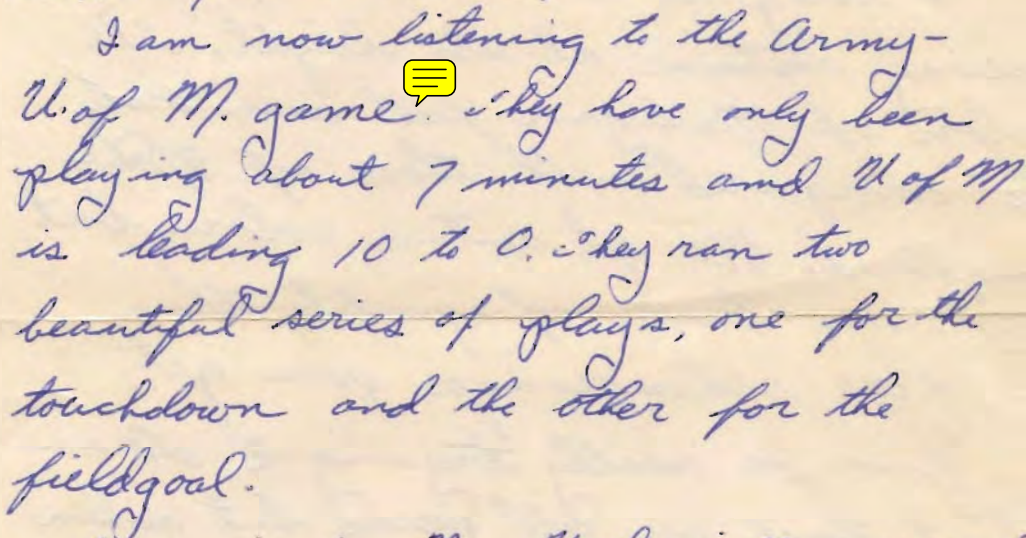 I am now listening to the Army-
U. of M. game. They have only been
playing about 7 minutes and U of M
is leading 10 to 0. They ran two
beautiful series of plays, one for the
touchdown and the other for the
fieldgoal.